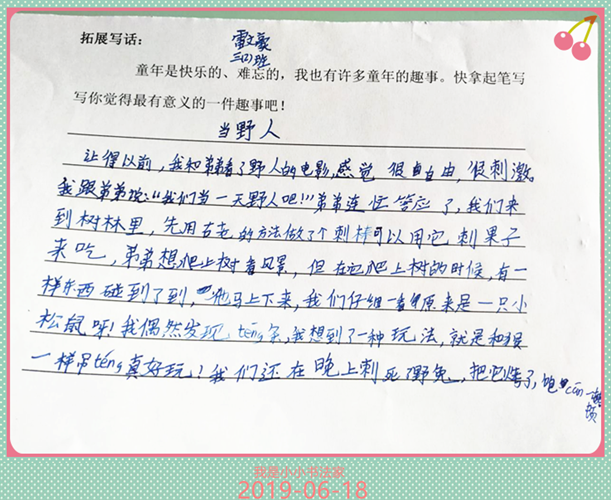 拓展写话：
雷文豪
三(1)班
童年是快乐的、难忘的，我也有许多童年的趣事。快拿起笔写
写你觉得最有意义的一件趣事吧！
当野人
让得以前，我和弟弟看了野人的电影，感觉 很自由，很刺激
我跟弟弟说：“我们当一天野人吧！”弟弟连忙答应了，我们来
到树林里，先用古老的方法做了个刺 可以用它刺果子
来吃，弟弟想爬上树看风景，但在他爬上树的时候，有一
样东西碰到了到，他马上下来，我们仔细一看原来是一只小
松鼠呀！我偶然发现 téng条，我想到了一种玩法，就是和猴
一样吊téng真好玩！我们还在晚上刺死了野兔，把它烤了，饱 cān一顿
我是小小书法家
2019-06-18